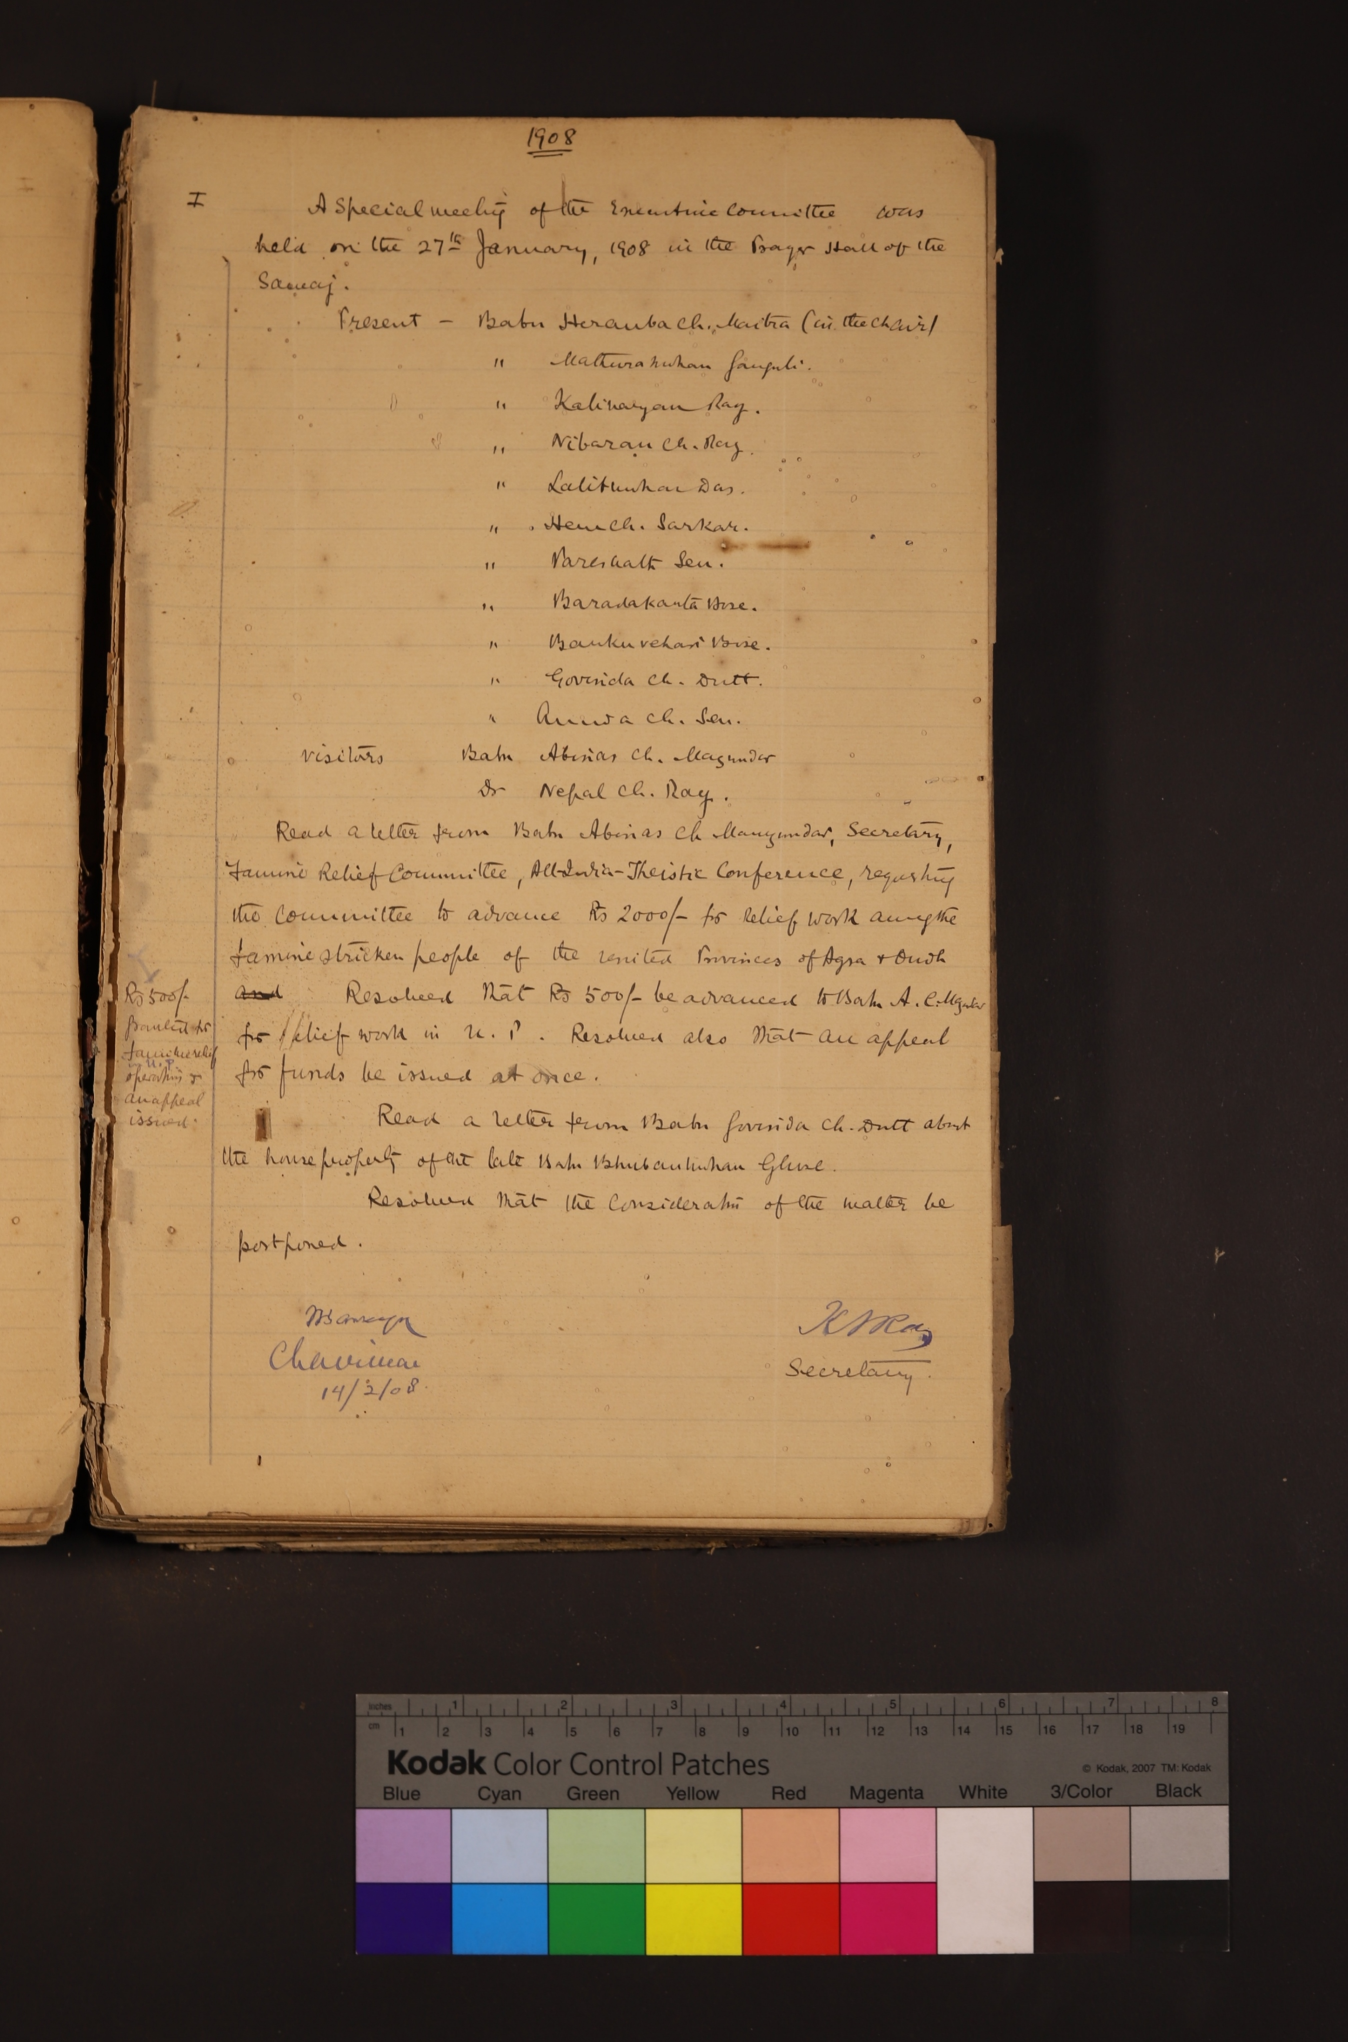 1908
I
A Special meeting of the Executive Committee was
held on the 27th January, 1908 in the Prayer Hall of the
Samaj.
Present - Babu Heramba Ch. Maitra (in the chair)
" Mathuramohan Ganguli.
" Kalinarayan Ray.
" Nibaran Ch. Ray.
" Lalitmohan Das.
" Hem Ch. Sarkar.
" Pareshnath Sen.
" Baradakanta Bose.
" Banku vehari Bose.
" Govinda Ch. Dutt.
" Ch. Sen.
visitors Babu Abinas Ch. Mazumdar
Dr Nepal Ch. Ray.
Read a letter from Babu Abinas Ch Mazumdar, Secretary,
Famine Relief Committee, All-India-Theistic Conference, requesting
the Committee to advance Rs 2000/- for relief work among the
famine stricken people of the United Provinces of Agra + Oudh
and Resolved that Rs 500/- be advanced to Babu A. C. Mazumdar
for relief work in U. P. Resolved also that an appeal
for funds be issued at once.
Rs 500/-
granted for
famine relief
in U. P.
operations &
an appeal
issued.
Read a letter from Babu Govinda Ch. Dutt about
the house property of the late Babu Bhubanmohan Ghose.
Resolved that the consideration of the matter be
postponed.
Chairman
14/2/08.
K N Ray
Secretary.
inches 1 2 3 4 5 6 7 8
cm 1 2 3 4 5 6 7 8 9 10 11 12 13 14 15 16 17 18 19
Kodak Color Control Patches
© Kodak, 2007 TM: Kodak
Blue Cyan Green Yellow Red Magenta White 3/Color Black